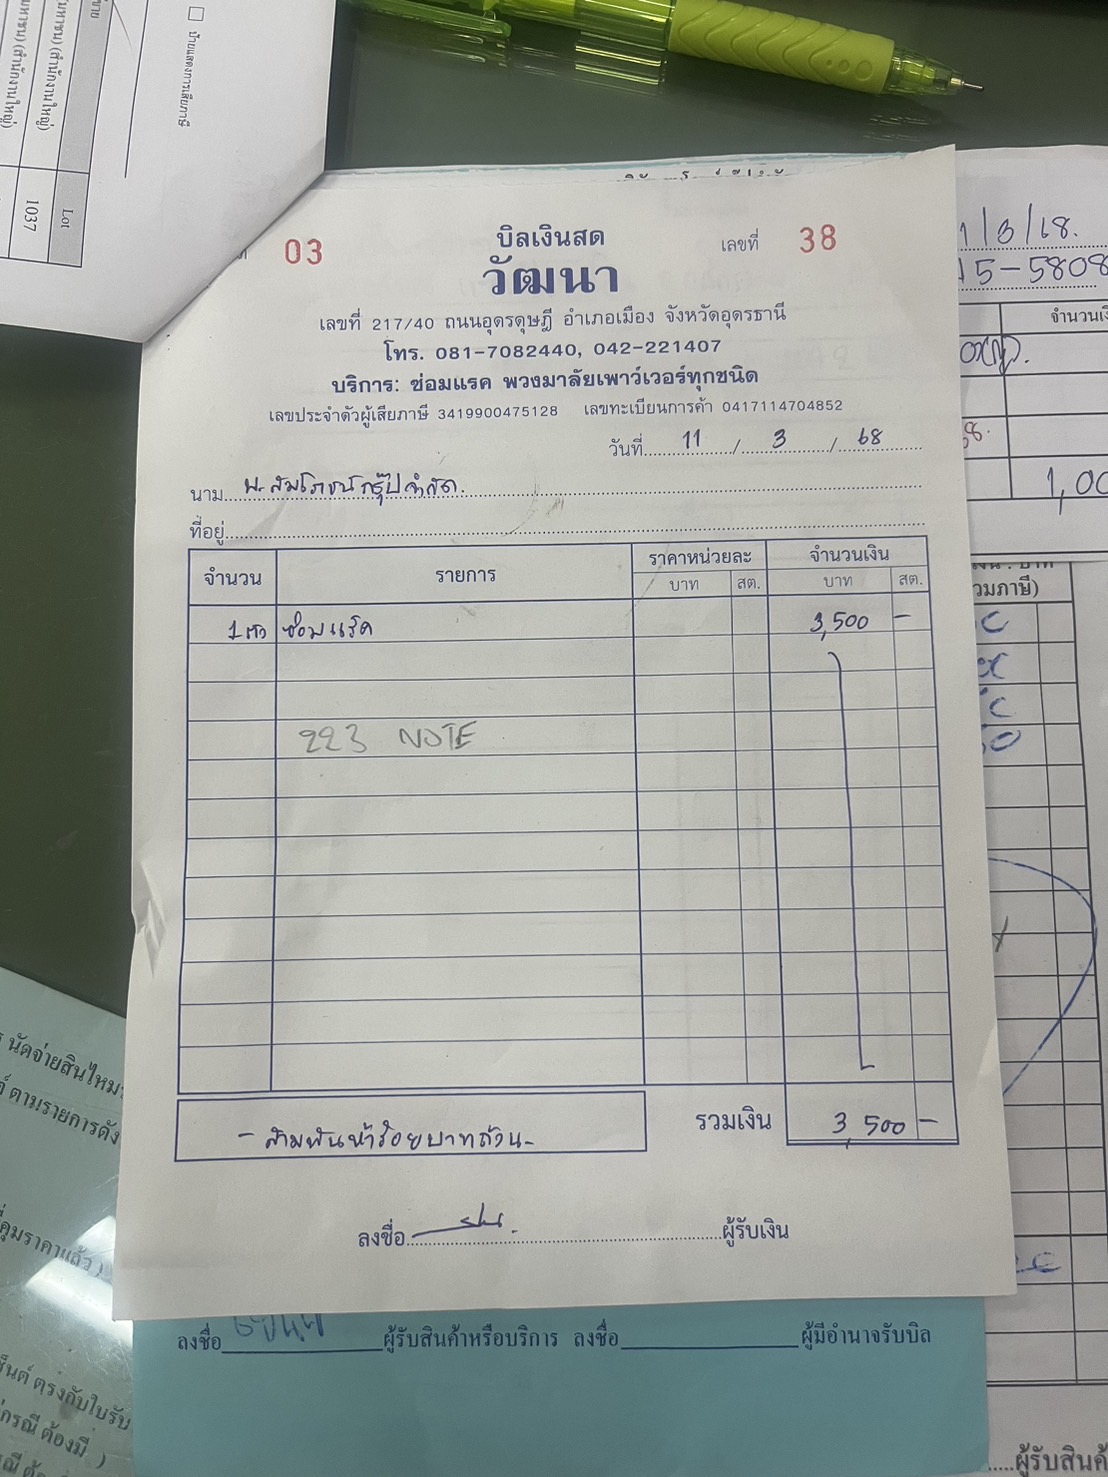 ป้ายแสดงการเสียภาษี
มหาชน) (สำนักงานใหญ่)
Lot
1037
03
บิลเงินสด
เลขที่ 38
วัฒนา
เลขที่ 217/40 ถนนอุดรดุษฎี อำเภอเมือง จังหวัดอุดรธานี
โทร. 081-7082440, 042-221407
บริการ: ซ่อมแรค พวงมาลัยเพาว์เวอร์ทุกชนิด
เลขประจำตัวผู้เสียภาษี 3419900475128 เลขทะเบียนการค้า 0417114704852
วันที่ 11 / 3 / 68
นาม บ. สัมโภชน์กรุ๊ป จำกัด.
ที่อยู่
จำนวน รายการ ราคาหน่วยละ จำนวนเงิน
บาท สต. บาท สต.
1 ตัว ซ่อมแร็ค 3,500 -
223 NOTE
รวมเงิน 3,500 -
- สามพันห้าร้อยบาทถ้วน -
ลงชื่อ ผู้รับเงิน
ลงชื่อ ผู้รับสินค้าหรือบริการ ลงชื่อ ผู้มีอำนาจรับบิล
1/3/68.
15-5808
จำนวนเงิ
1,00
วมภาษี)
นัดจ่ายสินไหม
ตามรายการดัง
คุมราคาแล้ว)
ตรงกับใบรับ
กรณี ต้องมี )
ผู้รับสินค้